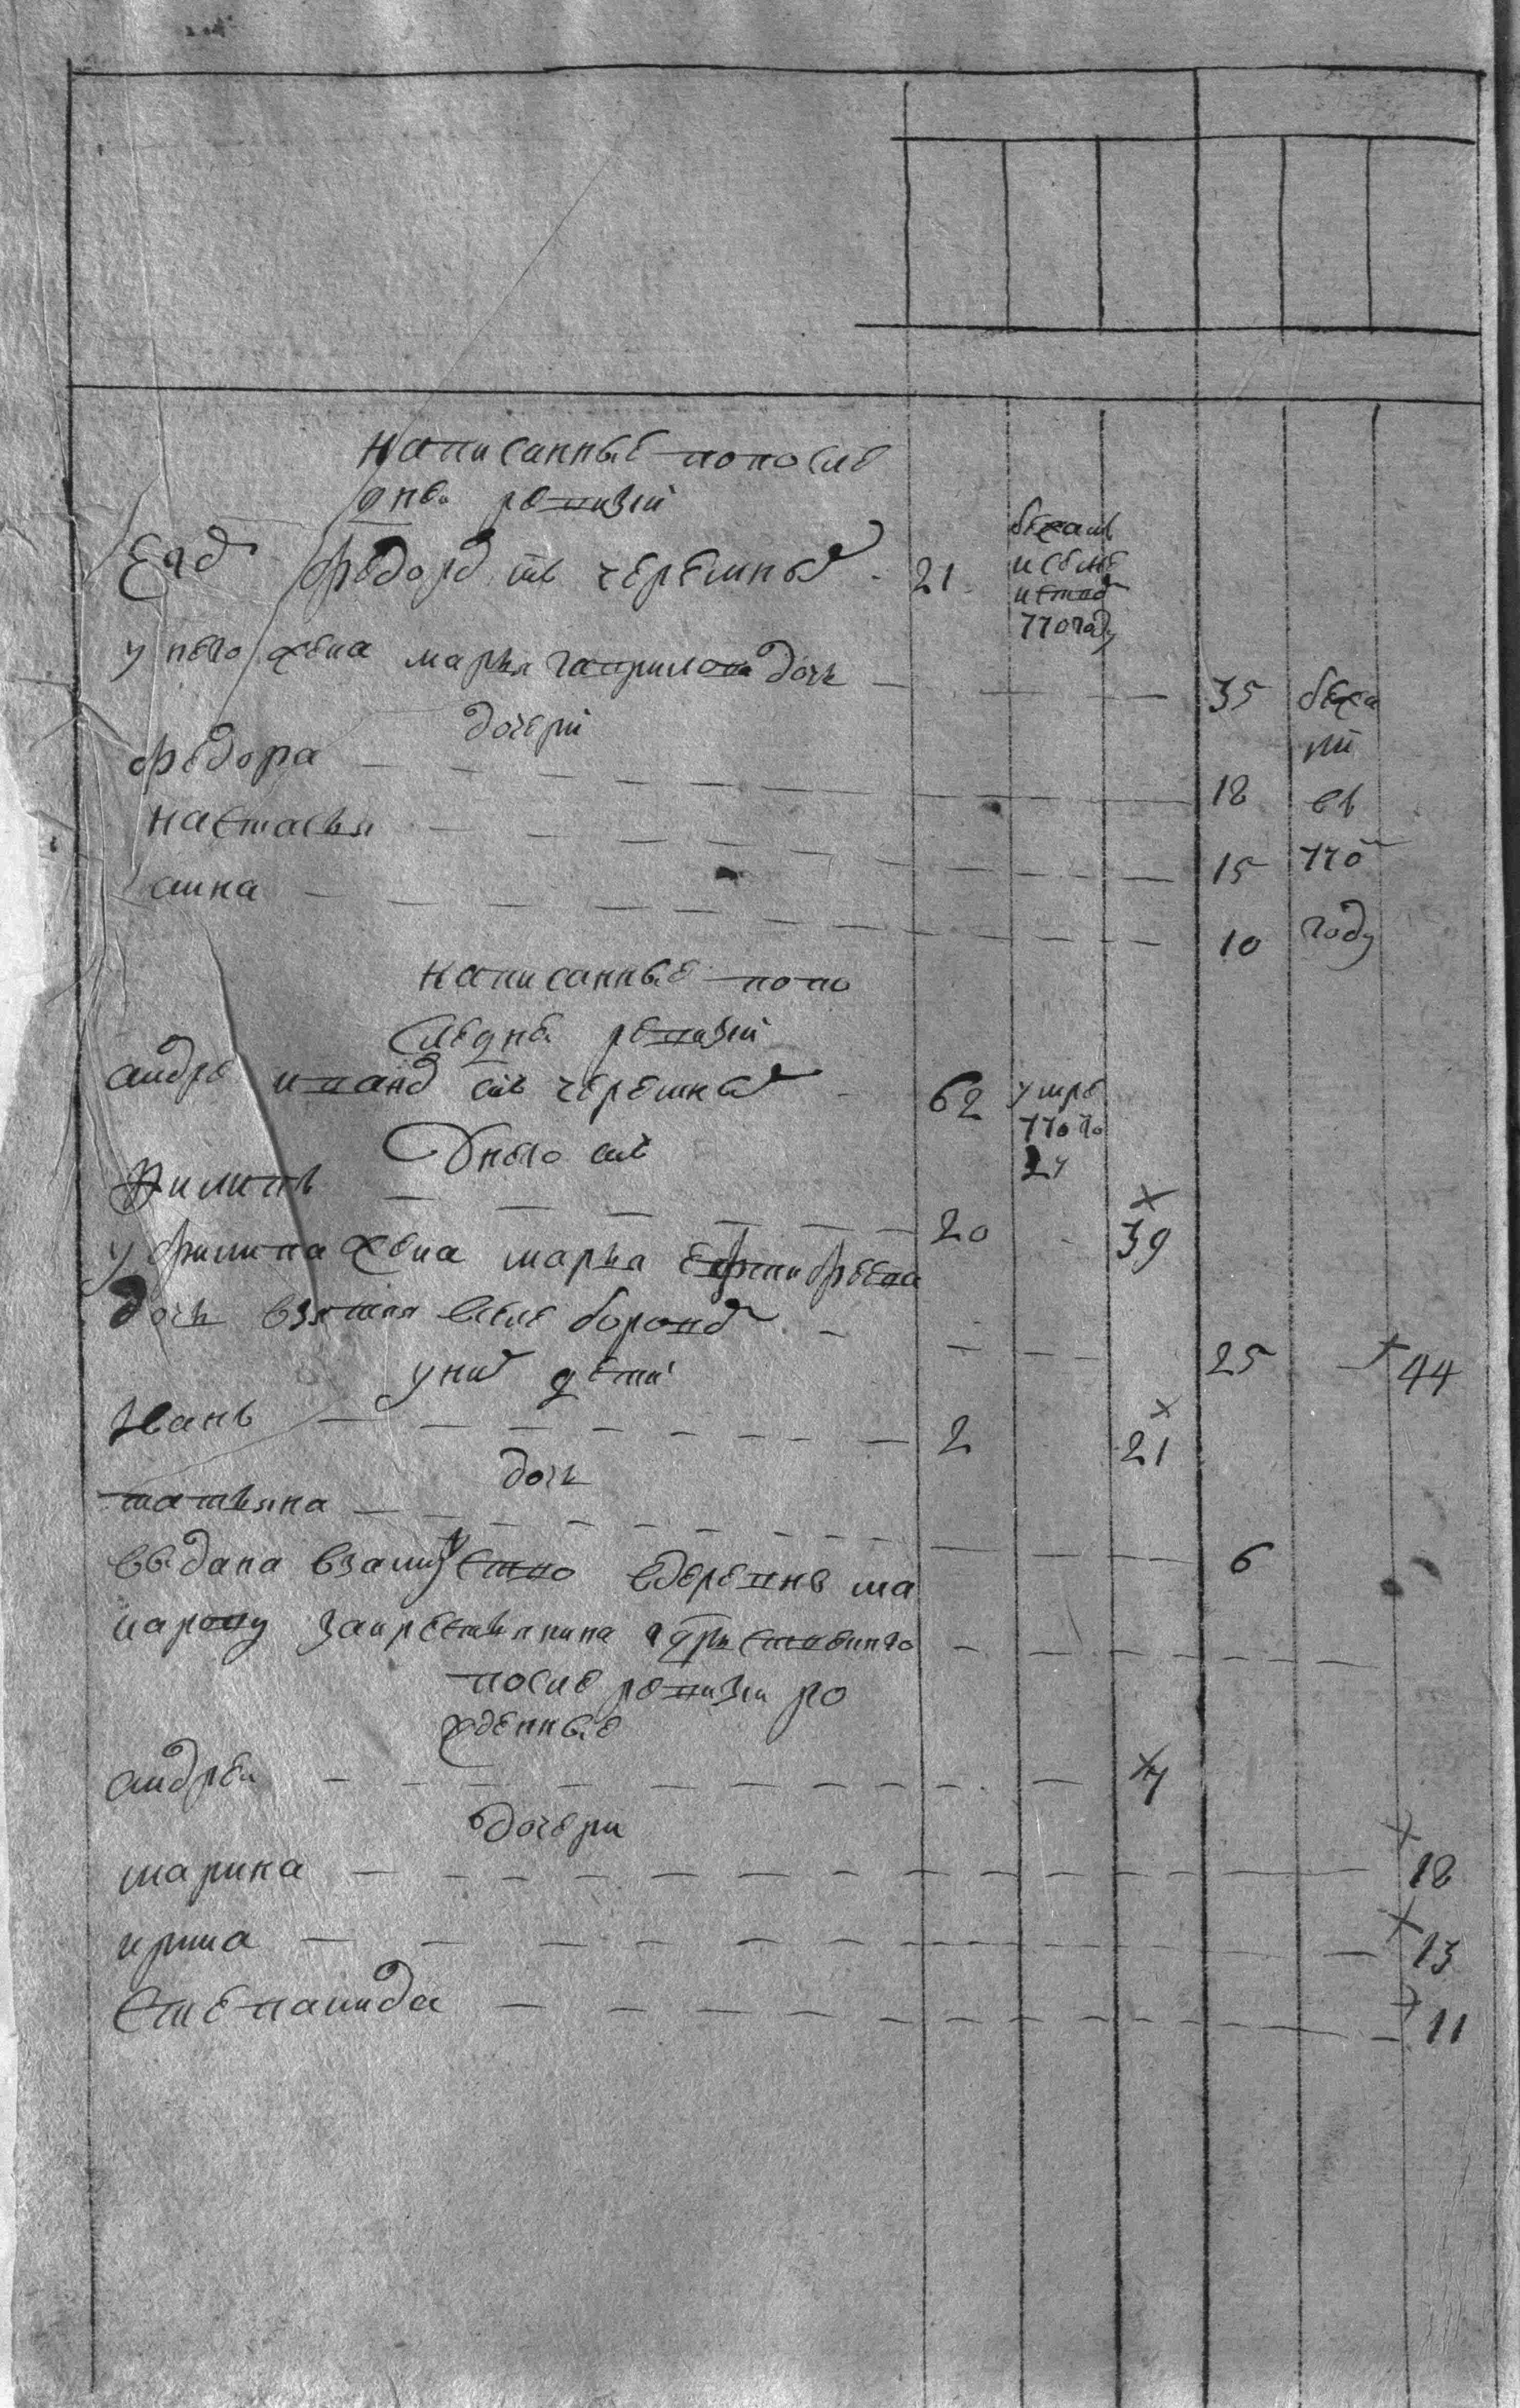 написанные попосле
дне ревизии
Егоръ федоровъ снъ черемныхъ 21 бежалъ
исемье
и
770году
у него жена марья гаврилова дочь 35 бежа
ли
дочери
федора 18 въ
настасья 15 770
анна 10 году
написанные попо
следне ревизии
андре ивановъ снъ черемныхъ 62 умре
770 го
ду
Унего снъ
Филипъ 20 39
у филипа жена марья дочь
дочь взятая
25 44
уних дети
Иванъ 2 21
дочь
татьяна 6
выдана взамужство вдеревню ма
карову закрестьянина
после ревизии ро
жденные
андреи 7
дочери
марина 18
ирина 13
степанида 11